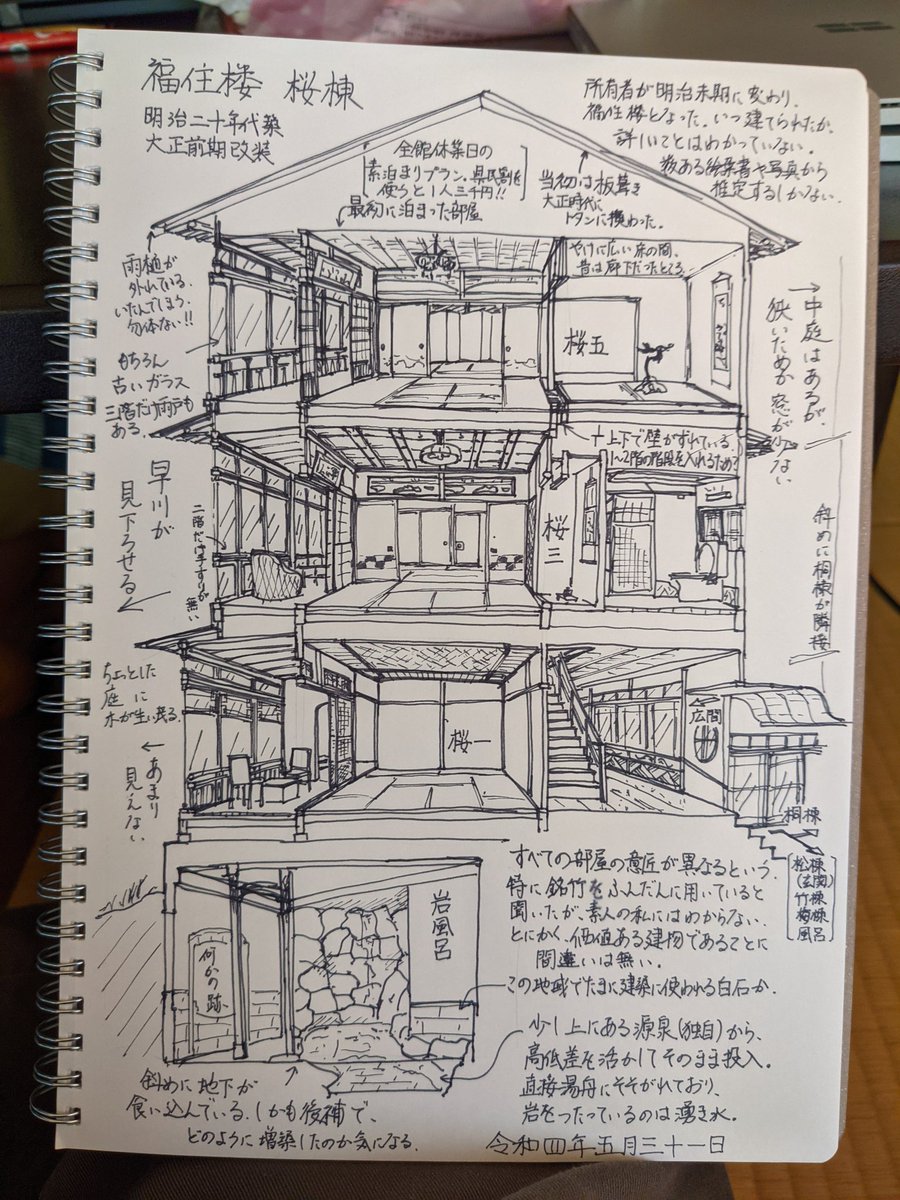 福住楼 桜棟
明治二十年代築
大正前期改装
所有者が明治末期に変わり、
福住楼となった。いつ建てられたか、
詳しいことはわかっていない。
数ある絵葉書や写真から
推定するしかない。
全館休業日の
素泊まりプラン。県民割を
使うと1人三千円!!
最初に泊まった部屋
当初は板葺き
大正時代に
トタンに変わった。
雨樋が
外れている。
いたんでしまう。
勿体ない!!
やけに広い床の間、
昔は廊下だったところ。
桜五
もちろん
古いガラス
三階だけ雨戸も
ある。
→中庭はあるが、
狭いためか窓が少ない
↑上下で壁がずれている。
1〜2階の階段を入れるため?
早川が
見下ろせる
二階だけ手すりが
無い
桜三
斜めに桐棟が隣接
ちょっとした
庭に
木が生い茂る。
← あまり
見えない
桜一
←広間
桐棟
松棟
(玄関)
竹棟
梅棟
風呂
すべての部屋の意匠が異なるという。
特に銘竹をふんだんに用いていると
聞いたが、素人の私にはわからない。
とにかく、価値ある建物であることに
間違いは無い。
岩風呂
何かの跡
この地域でたまに建築に使われる白石か。
少し上にある源泉(独自)から、
高低差を活かしてそのまま投入。
直接湯舟にそそがれており、
岩をつたっているのは湧き水。
斜めに地下が
食い込んでいる。しかも後補で、
どのように増築したのか気になる。
令和四年五月三十一日